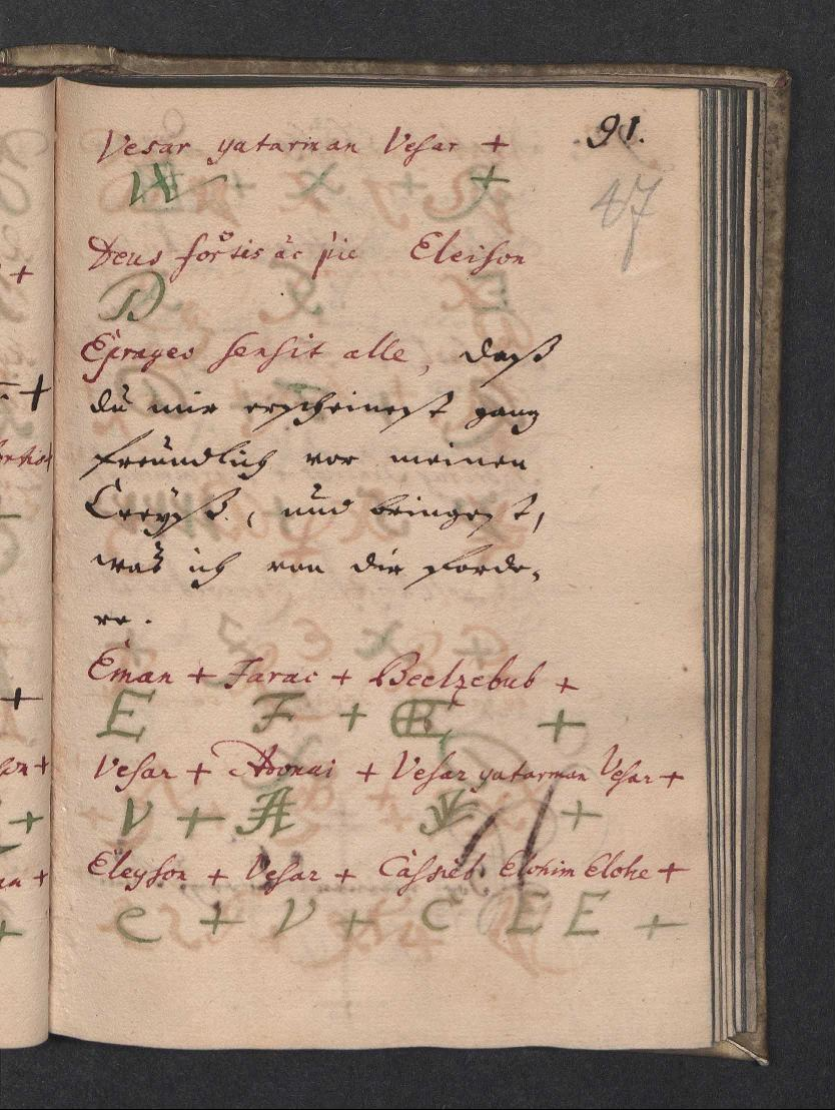 91.
47
Vesar yatarman Vesar +
+
Deus fortis ac pie Eleison
D
sensit alle, daß
du mir erscheinest ganz
freündlich vor meinen
Creyß, und bringest,
was ich von dir forde-
re.
Eman + Farac + Beelzebub +
E F + B +
Vesar + Adonai + Vesar yatarman Vesar +
V + A +
Eleyson + Vesar + Elohim Elohe +
e + V + C E E +